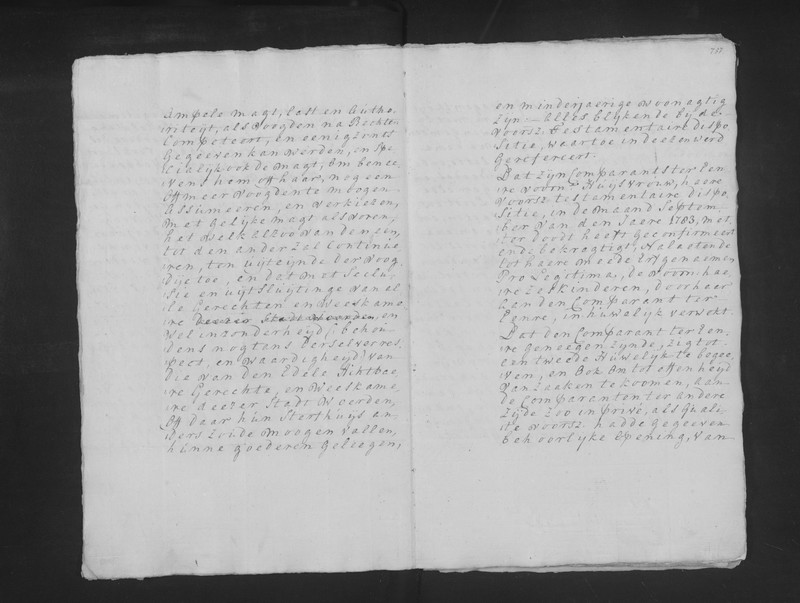 Ampele magt, last en Autho-
riteyt, als Voogden na Rechte
Competeert, en eenigzints
gegeeven kan werden, en spe
cialyk ook de magt, om benee
vens hem off haar, nog een
off meer voogden te moogen
Assumeeren, en verkiezen,
met gelyke magt als vooren,
het welk alzoo van den een,
tot den ander zal continue
ren, ten uyteynde der voog
dye toe, en dat met Seclu-
sie en uytsluytinge van al
le Gerechten en Weeskame
ren deezer Stadt Woerden, en
wel inzonderheyd (behou
dens nogtans derselver res
pect, en waardigheyd) van
die van den Edele Achtbae
re Gerechte, en Weeskame
re deezer Stadt Woerden,
Off daar hún Sterfhuys an-
ders zoude moogen vallen,
húnne goederen geleegen,
en minderjaerige woonagtig
zyn. — Alles blykende by de
voorsz. Testamentaire dispo
sitie, waartoe in deezen werd
gerefereert.
Dat zyn Comparants ter Een
re voorn. Huysvrouw, haere
voorsz. testamentaire dispo
sitie, in de maand Septem
ber van den Jaere 1783, met
ter doodt heeft geconfirmeert
ende bekragtigt, Nalaatende
tot haere meede Erfgenaemen
Pro Legitima, de voorn. hae
re zes kinderen, door haer
aan den Comparant ter
Eenre, in huwelyk verwekt.
Dat den Comparant ter Een,
re geneegen zynde, zig tot
een tweede Húwelyk te begee
ven, en Ook om tot effenheyd
van zaaken te koomen, aan
de Comparanten ter andere
zyde zoo in privé, als quali
teit voorsz. hadde gegeeven
behoorlyke Opening, van